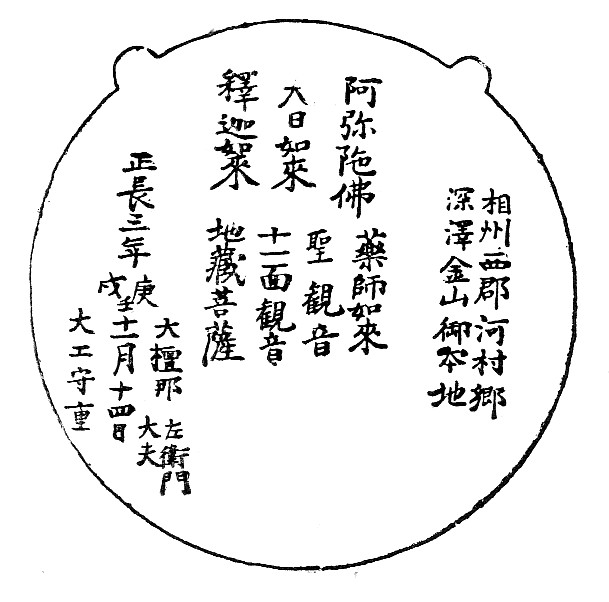 相州西郡河村郷
深澤金山御本地
阿弥陀佛
大日如來
釋迦如來
藥師如來
聖観音
十一面観音
地藏菩薩
正長三年庚戌
十一月十四日
大檀那
左衛門
大夫
大工守重